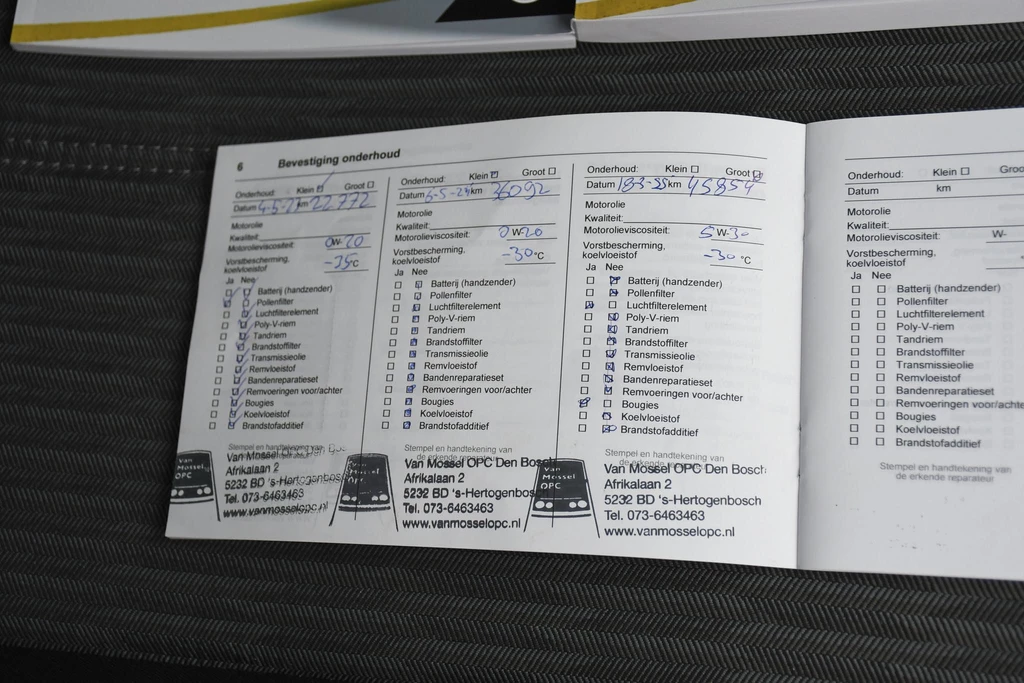 6 Bevestiging onderhoud
Onderhoud: Klein ☑ Groot ☐
Datum 4-5-23 km 22772
Motorolie
Kwaliteit:
Motorolieviscositeit: 0W-20
Vorstbescherming,
koelvloeistof -35°C
Ja Nee
Batterij (handzender)
Pollenfilter
Luchtfilterelement
Poly-V-riem
Tandriem
Brandstoffilter
Transmissieolie
Remvloeistof
Bandenreparatieset
Remvoeringen voor/achter
Bougies
Koelvloeistof
Brandstofadditief
Stempel en handtekening van
de erkende reparateur
Van Mossel OPC Den Bosch
Afrikalaan 2
5232 BD 's-Hertogenbosch
Tel. 073-6463463
www.vanmosselopc.nl
Van
Mossel
OPC
Onderhoud: Klein ☑ Groot ☐
Datum 6-5-24 km 36092
Motorolie
Kwaliteit:
Motorolieviscositeit: 0W-20
Vorstbescherming,
koelvloeistof -30°C
Ja Nee
Batterij (handzender)
Pollenfilter
Luchtfilterelement
Poly-V-riem
Tandriem
Brandstoffilter
Transmissieolie
Remvloeistof
Bandenreparatieset
Remvoeringen voor/achter
Bougies
Koelvloeistof
Brandstofadditief
Stempel en handtekening van
de erkende reparateur
Van Mossel OPC Den Bosch
Afrikalaan 2
5232 BD 's-Hertogenbosch
Tel. 073-6463463
www.vanmosselopc.nl
Van
Mossel
OPC
Onderhoud: Klein ☐ Groot ☑
Datum 18-3-25 km 45854
Motorolie
Kwaliteit:
Motorolieviscositeit: 5W-30
Vorstbescherming,
koelvloeistof -30°C
Ja Nee
Batterij (handzender)
Pollenfilter
Luchtfilterelement
Poly-V-riem
Tandriem
Brandstoffilter
Transmissieolie
Remvloeistof
Bandenreparatieset
Remvoeringen voor/achter
Bougies
Koelvloeistof
Brandstofadditief
Stempel en handtekening van
de erkende reparateur
Van Mossel OPC Den Bosch
Afrikalaan 2
5232 BD 's-Hertogenbosch
Tel. 073-6463463
www.vanmosselopc.nl
Van
Mossel
OPC
Onderhoud: Klein ☐ Groo
Datum km
Motorolie
Kwaliteit:
Motorolieviscositeit: W-
Vorstbescherming,
koelvloeistof
Ja Nee
Batterij (handzender)
Pollenfilter
Luchtfilterelement
Poly-V-riem
Tandriem
Brandstoffilter
Transmissieolie
Remvloeistof
Bandenreparatieset
Remvoeringen voor/achte
Bougies
Koelvloeistof
Brandstofadditief
Stempel en handtekening van
de erkende reparateur